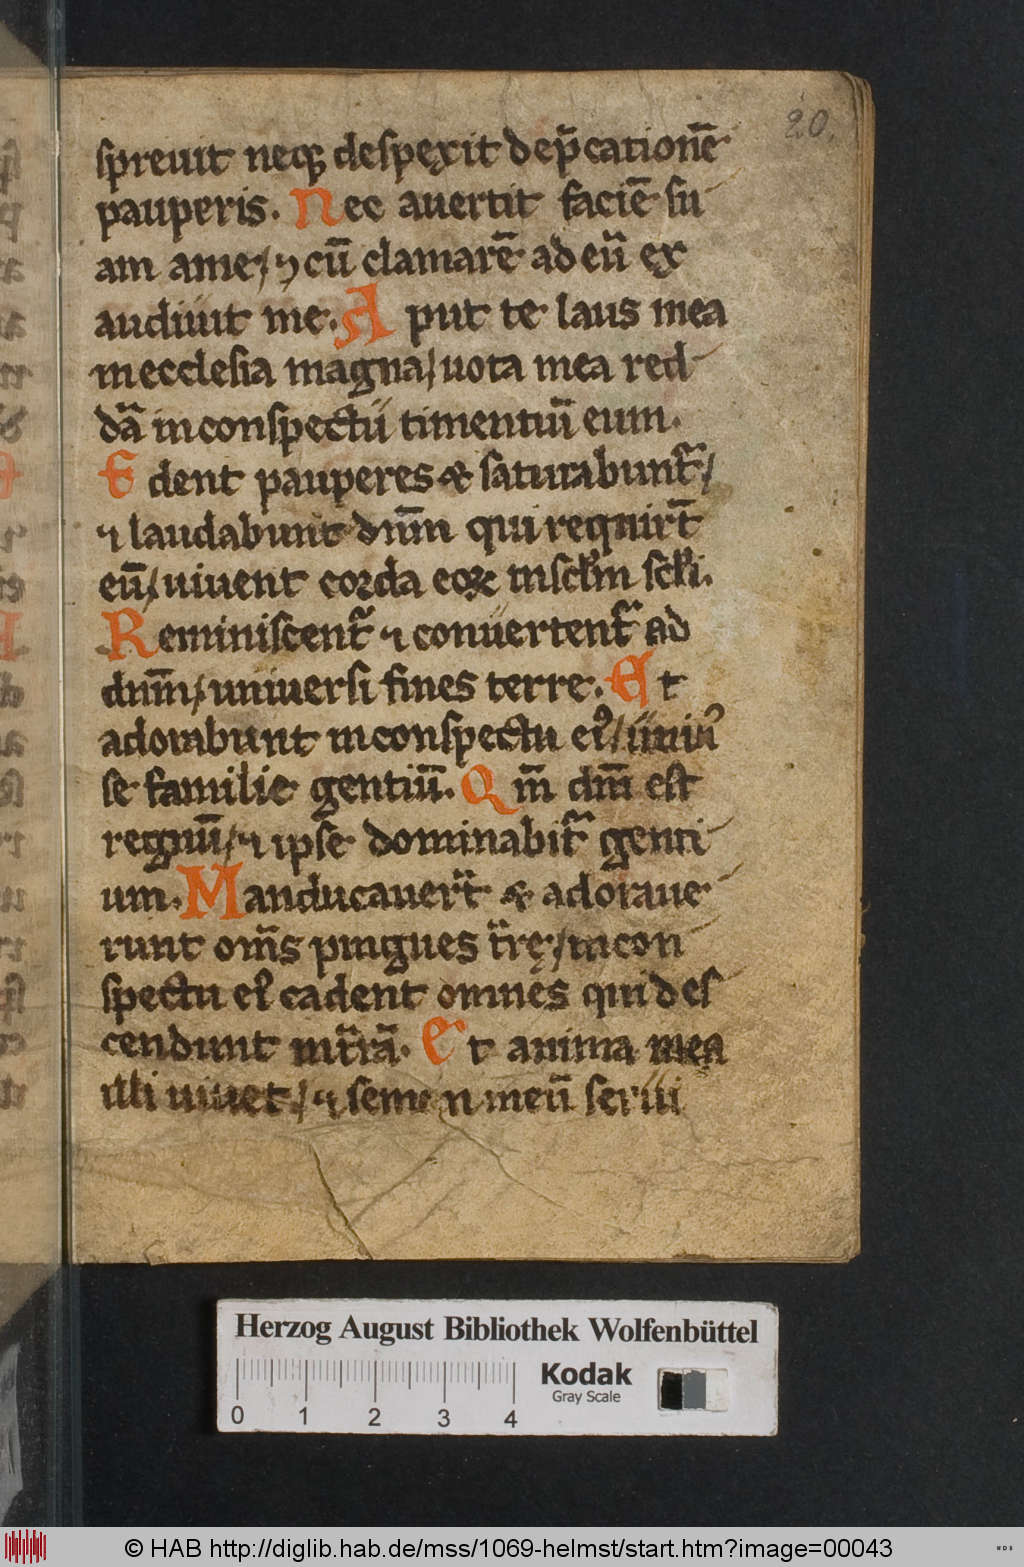 20.
spreuit neqꝫ despexit dep̄cationē
pauperis. Nec auertit faciē su
am ame/ ⁊ cū clamarē ad eū ex
audiuit me. Aput te laus mea
in ecclesia magna/ uota mea red
dā in conspectu timentiū eum.
Edent pauperes & saturabunt᷑/
⁊ laudabunt dnm̄ qui requirt̄
eū/ uiuent corda eoꝝ in scl̄m scl̄i.
Reminiscent᷑ ⁊ conuertent᷑ ad
dnm̄/ uniuersi fines terre. Et
adorabunt in conspectu eiꝰ/ uniuꝰ
se familie gentiū. Qm̄ dm̄ est
regnū/ ⁊ ipse dominabit᷑ genti
um. Manducauer̄t & adoraue
runt om̄s pingues t̄rę/ in con
spectu eiꝰ cadent omnes qui des
cendunt in t̄rā. Et anima mea
illi uiuet/ ⁊ semen meū serui
Herzog August Bibliothek Wolfenbüttel
Kodak
Gray Scale
0 1 2 3 4
© HAB http://diglib.hab.de/mss/1069-helmst/start.htm?image=00043